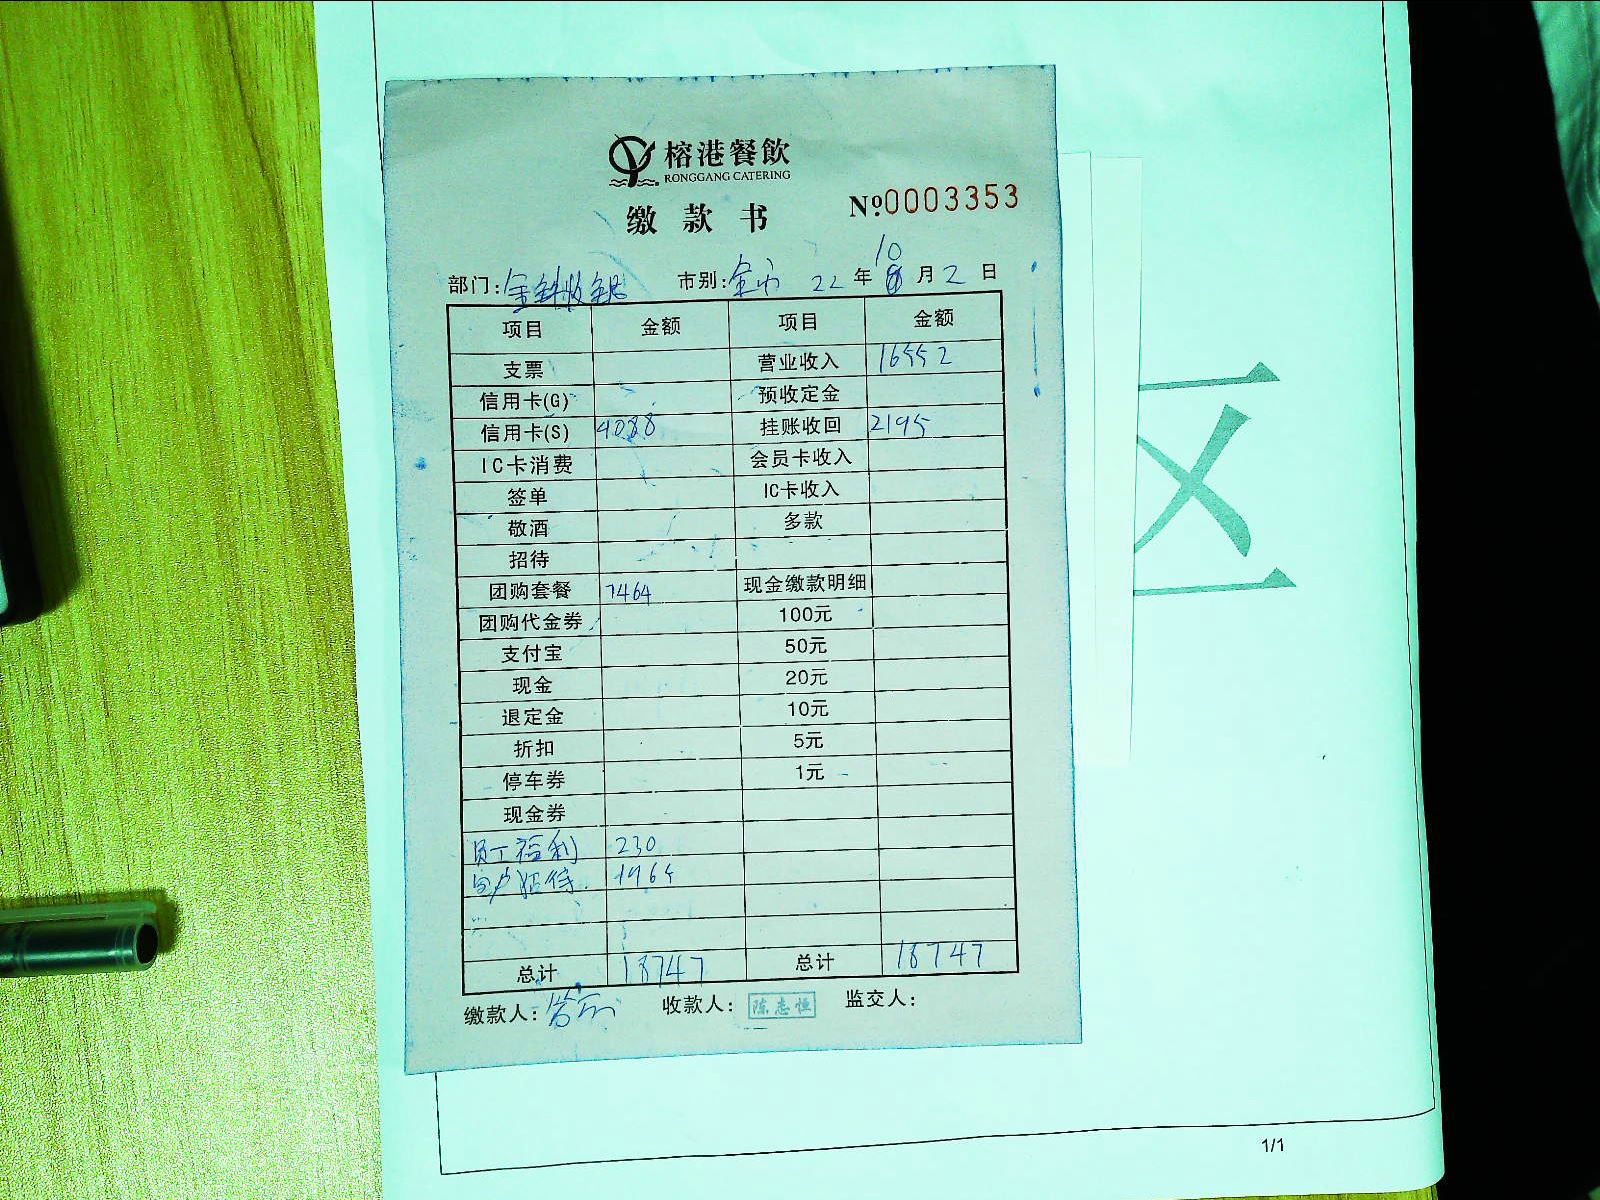 榕港餐飲
RONGGANG CATERING
缴款书
№0003353
部门: 收银 市别:全市 22年10月2日
项目 金额 项目 金额
支票 营业收入 16552
信用卡(G) 预收定金
信用卡(S) 9088 挂账收回 2195
IC卡消费 会员卡收入
签单 IC卡收入
敬酒 多款
招待
团购套餐 7464 现金缴款明细
团购代金券 100元
支付宝 50元
现金 20元
退定金 10元
折扣 5元
停车券 1元
现金券
员工福利 230
招待 1965
总计 18747 总计 18747
缴款人: 收款人:陈志恒 监交人:
区
1/1